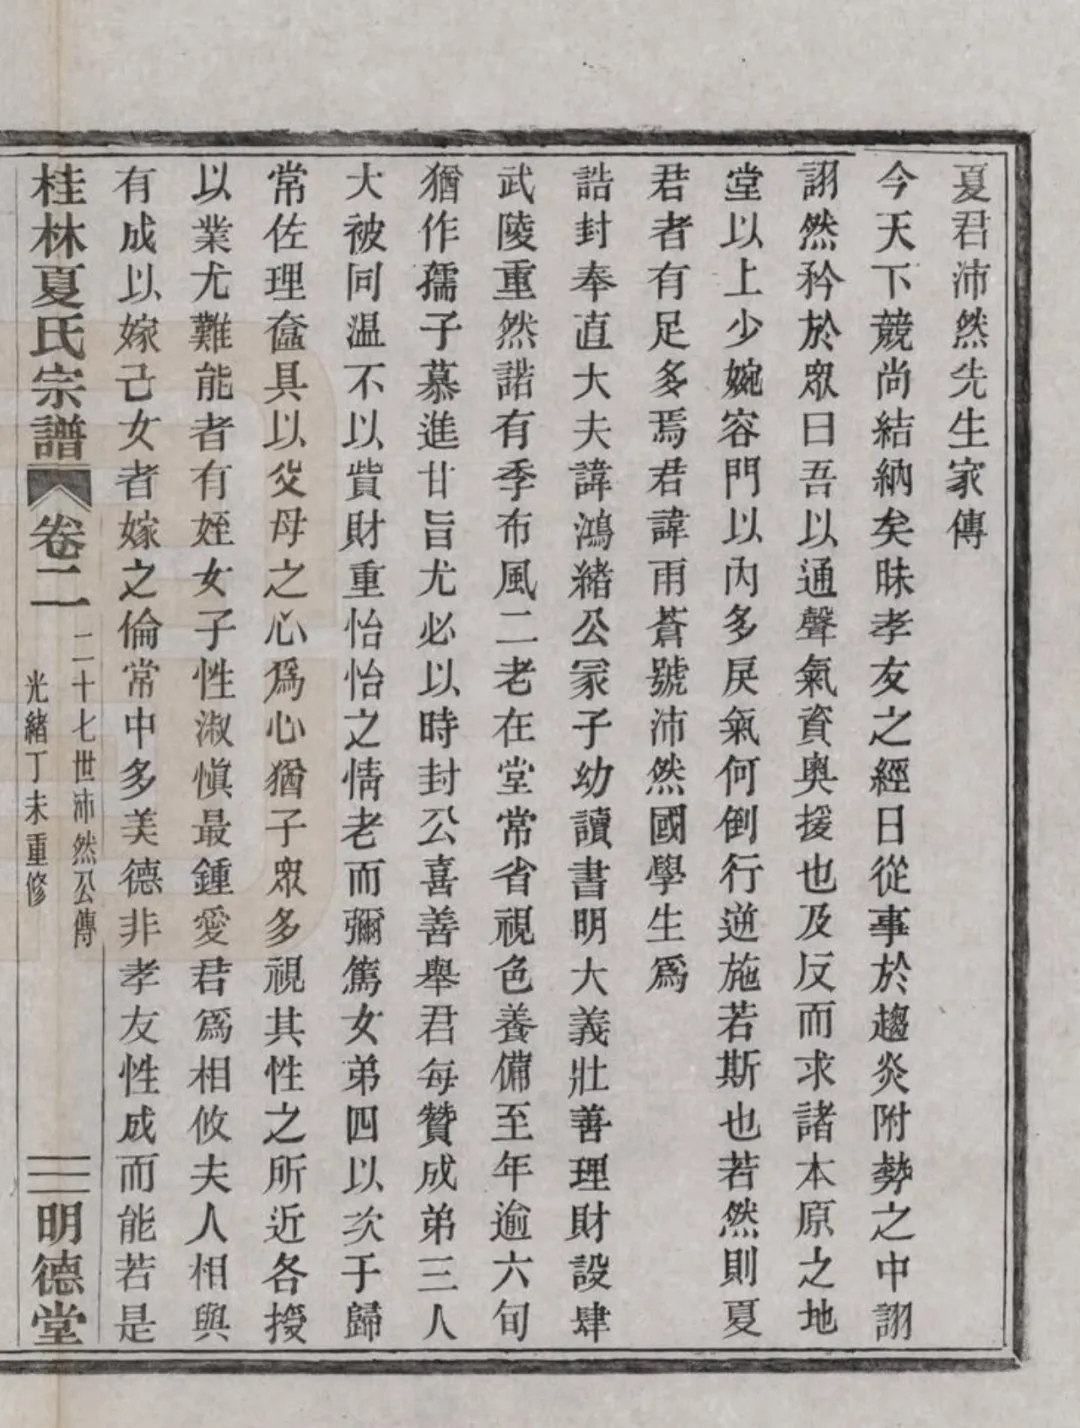 夏君沛然先生家傳
今天下競尚結納矣昧孝友之經日從事於趨炎附勢之中詡
詡然矜於眾曰吾以通聲氣資奧援也及反而求諸本原之地
堂以上少婉容門以內多戾氣何倒行逆施若斯也若然則夏
君者有足多焉君諱雨蒼號沛然國學生爲
誥封奉直大夫諱鴻緒公冢子幼讀書明大義壯善理財設肆
武陵重然諾有季布風二老在堂常省視色養備至年逾六旬
猶作孺子慕進甘旨尤必以時封公喜善舉君每贊成弟三人
大被同溫不以貲財重怡怡之情老而彌篤女弟四以次于歸
常佐理奩具以父母之心爲心猶子眾多視其性之所近各授
以業尤難能者有姪女子性淑愼最鍾愛君爲相攸夫人相與
有成以嫁己女者嫁之倫常中多美德非孝友性成而能若是
桂林夏氏宗譜 卷二 二十七世沛然公傳 光緒丁未重修 三 明德堂